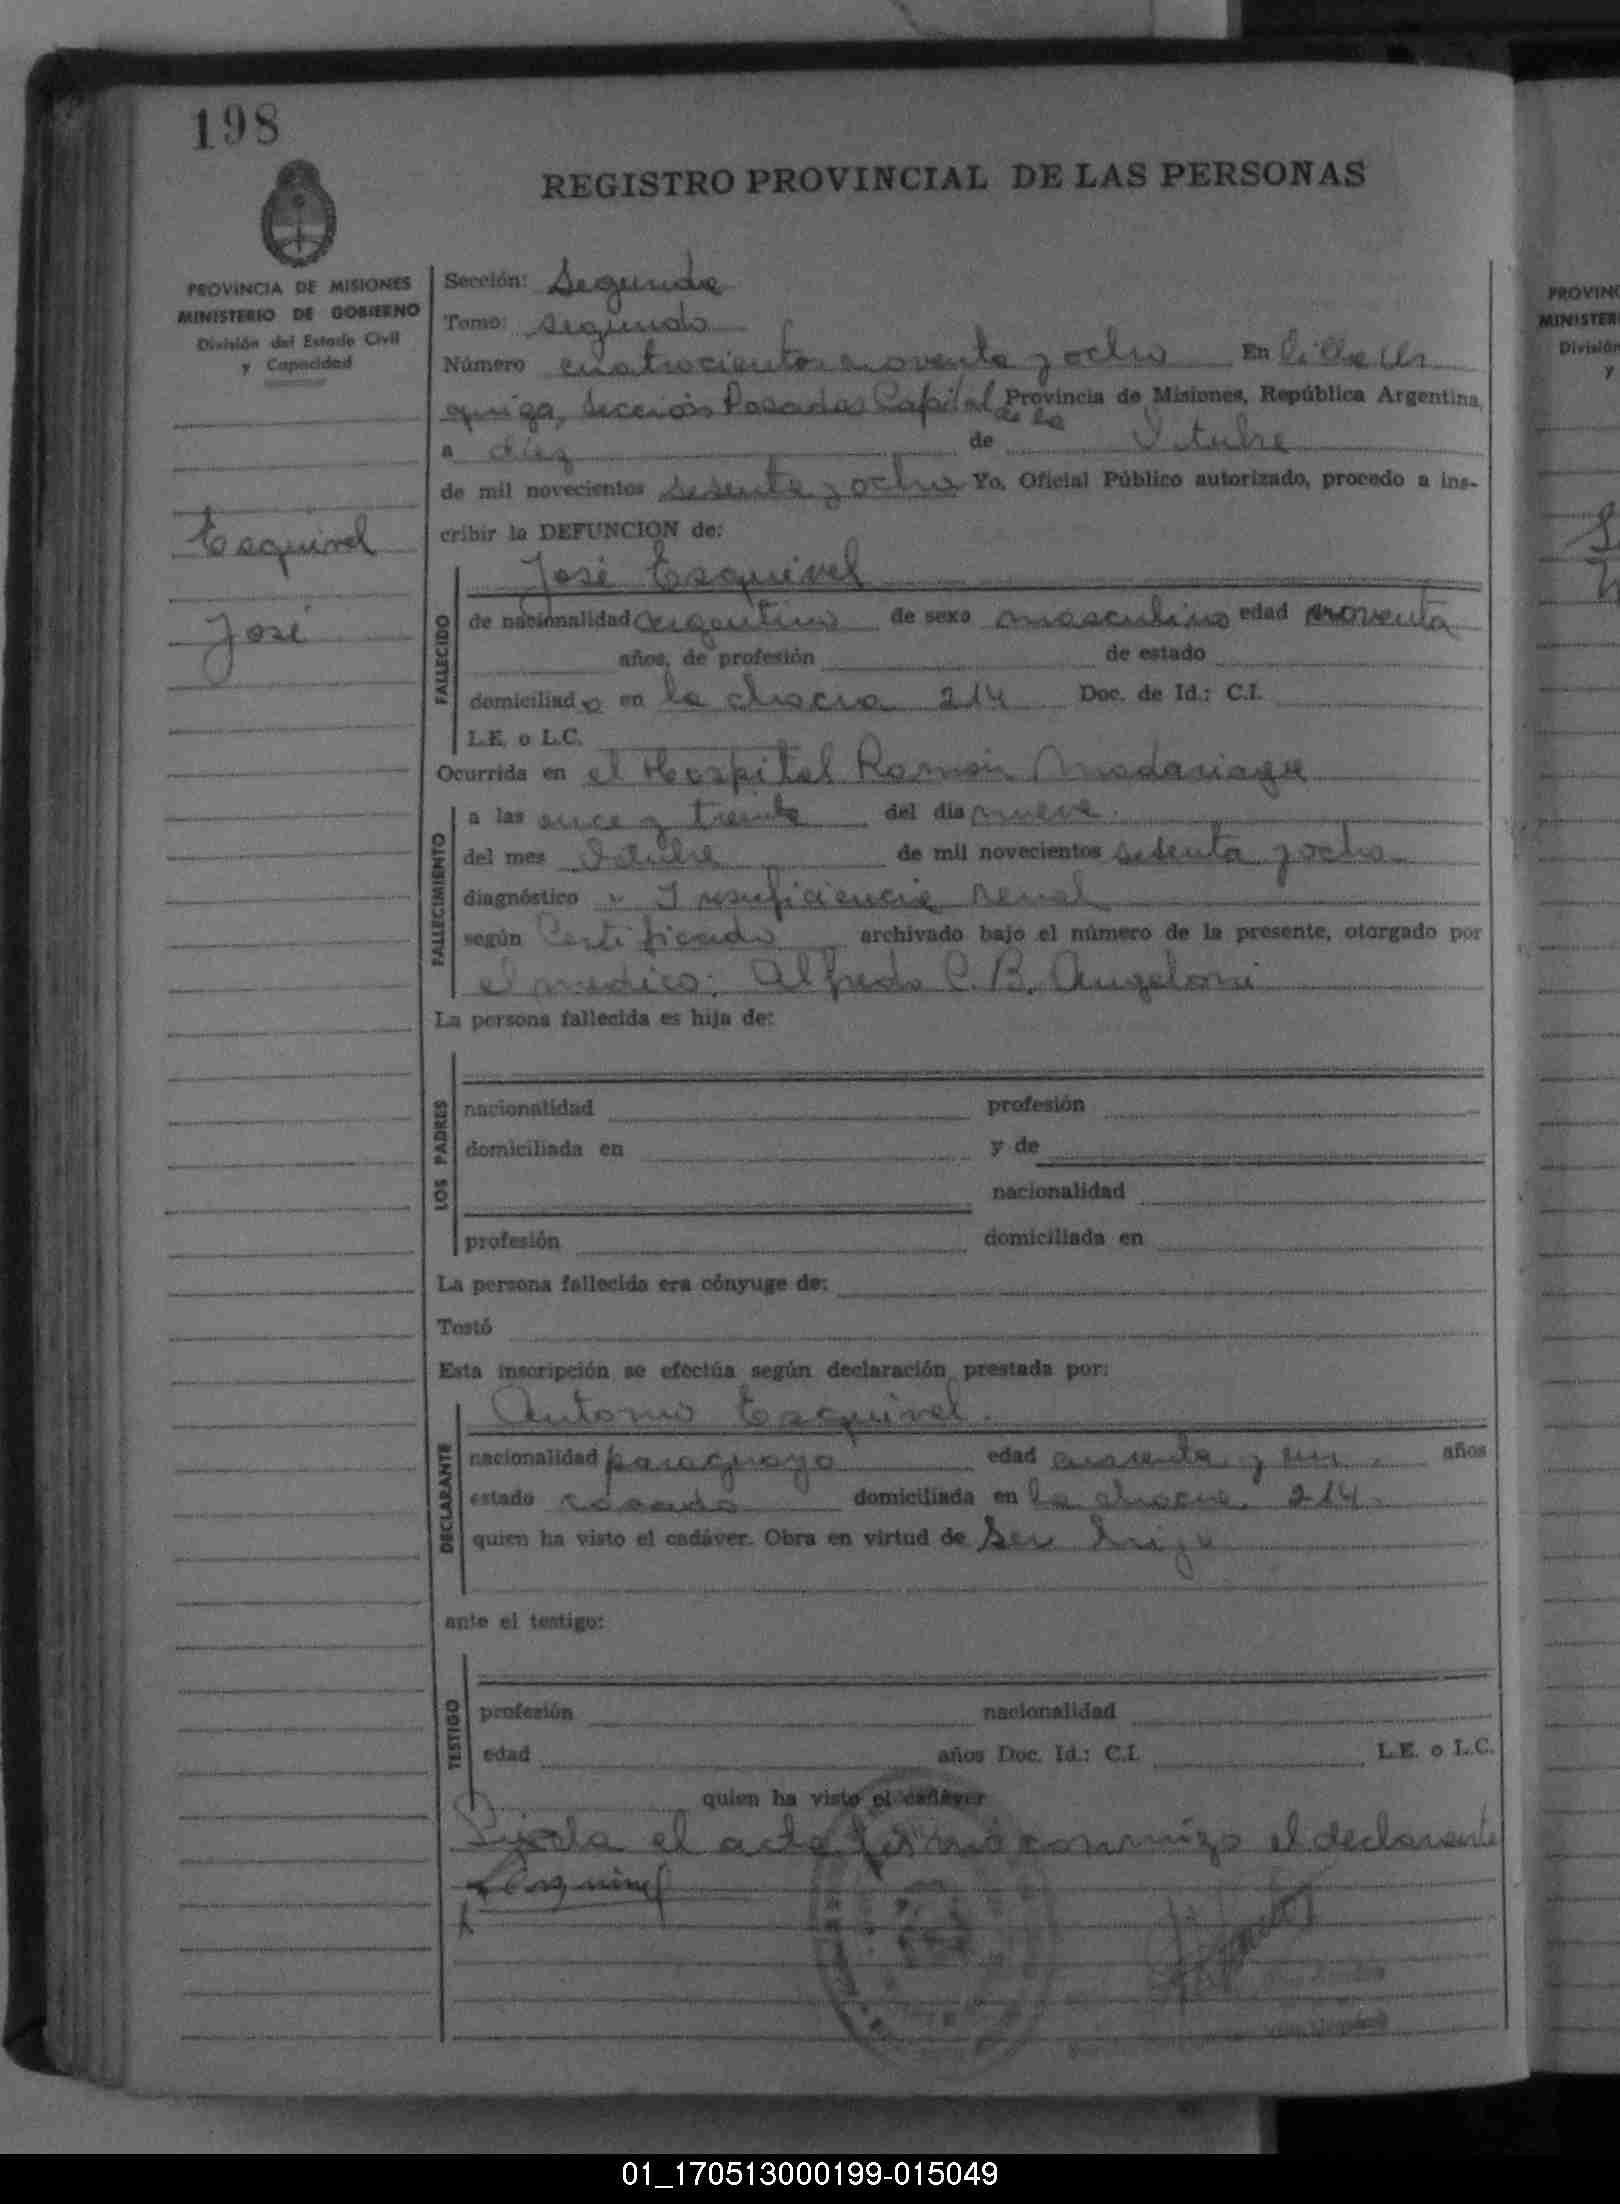 198
REGISTRO PROVINCIAL DE LAS PERSONAS
PROVINCIA DE MISIONES
MINISTERIO DE GOBIERNO
División del Estado Civil
y Capacidad
Esquivel
José
Sección: Segunda
Tomo: segundo
Número cuatrocientos noventa y ocho En Villa Ur
quiza, sección Posadas Capital de la Provincia de Misiones, República Argentina,
a diez de Octubre
de mil novecientos sesenta y ocho Yo, Oficial Público autorizado, procedo a ins-
cribir la DEFUNCION de:
José Esquivel
FALLECIDO
de nacionalidad argentino de sexo masculino edad noventa
años, de profesión de estado
domiciliado en la chacra 214 Doc. de Id.: C.I.
L.E. o L.C.
Ocurrida en el Hospital Ramón Madariaga
FALLECIMIENTO
a las once y treinta del día nueve.
del mes Octubre de mil novecientos sesenta y ocho
diagnóstico Insuficiencia renal
según Certificado archivado bajo el número de la presente, otorgado por
el medico: Alfredo C.B. Angeloni
La persona fallecida es hija de:
LOS PADRES
nacionalidad profesión
domiciliada en y de
nacionalidad
profesión domiciliada en
La persona fallecida era cónyuge de:
Testó
Esta inscripción se efectúa según declaración prestada por:
Antonio Esquivel.
DECLARANTE
nacionalidad paraguayo edad cuarenta y un años
estado casado domiciliada en la chacra 214.
quien ha visto el cadáver. Obra en virtud de ser hijo
ante el testigo:
TESTIGO
profesión nacionalidad
edad años Doc. Id.: C.I. L.E. o L.C.
quien ha visto el cadáver
el acta firmó conmigo el declarante
Esquivel
PROVINC
MINISTER
División
y
01_170513000199-015049